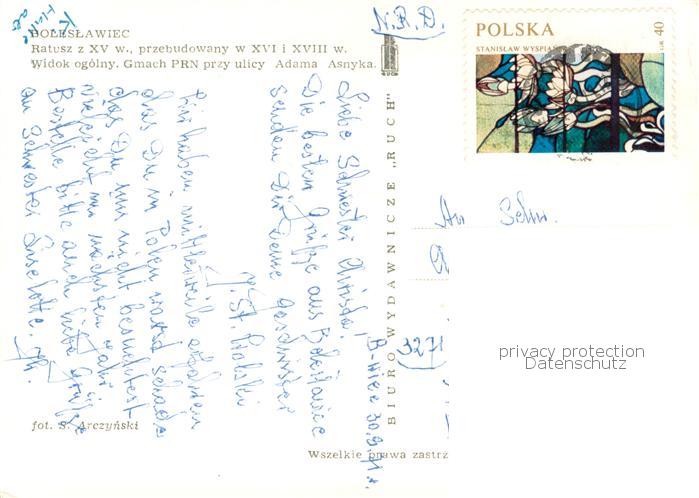 Kleine
BOLESŁAWIEC
Ratusz z XV w., przebudowany w XVI i XVIII w.
Widok ogólny. Gmach PRN przy ulicy Adama Asnyka.
N.R.D.
POLSKA
STANISŁAW WYSPIAŃ
GR 40
B-wiec 30.9.71r.
Liebe Schwester Christa!
Die besten Grüße aus Bolesławiec
senden Dir Deine Geschwister
J. St. Rolski
Wir haben mittlerweile erfahren
das Du in Polen warst schade
das Du uns nicht besuchtest
vielleicht im nächsten Jahr
Bestelle bitte auch liebe Grüße
an Schwester Liselotte.
BIURO WYDAWNICZE „RUCH"
An Schw.
3271
privacy protection
Datenschutz
fot. S. Arczyński
Wszelkie prawa zastrz